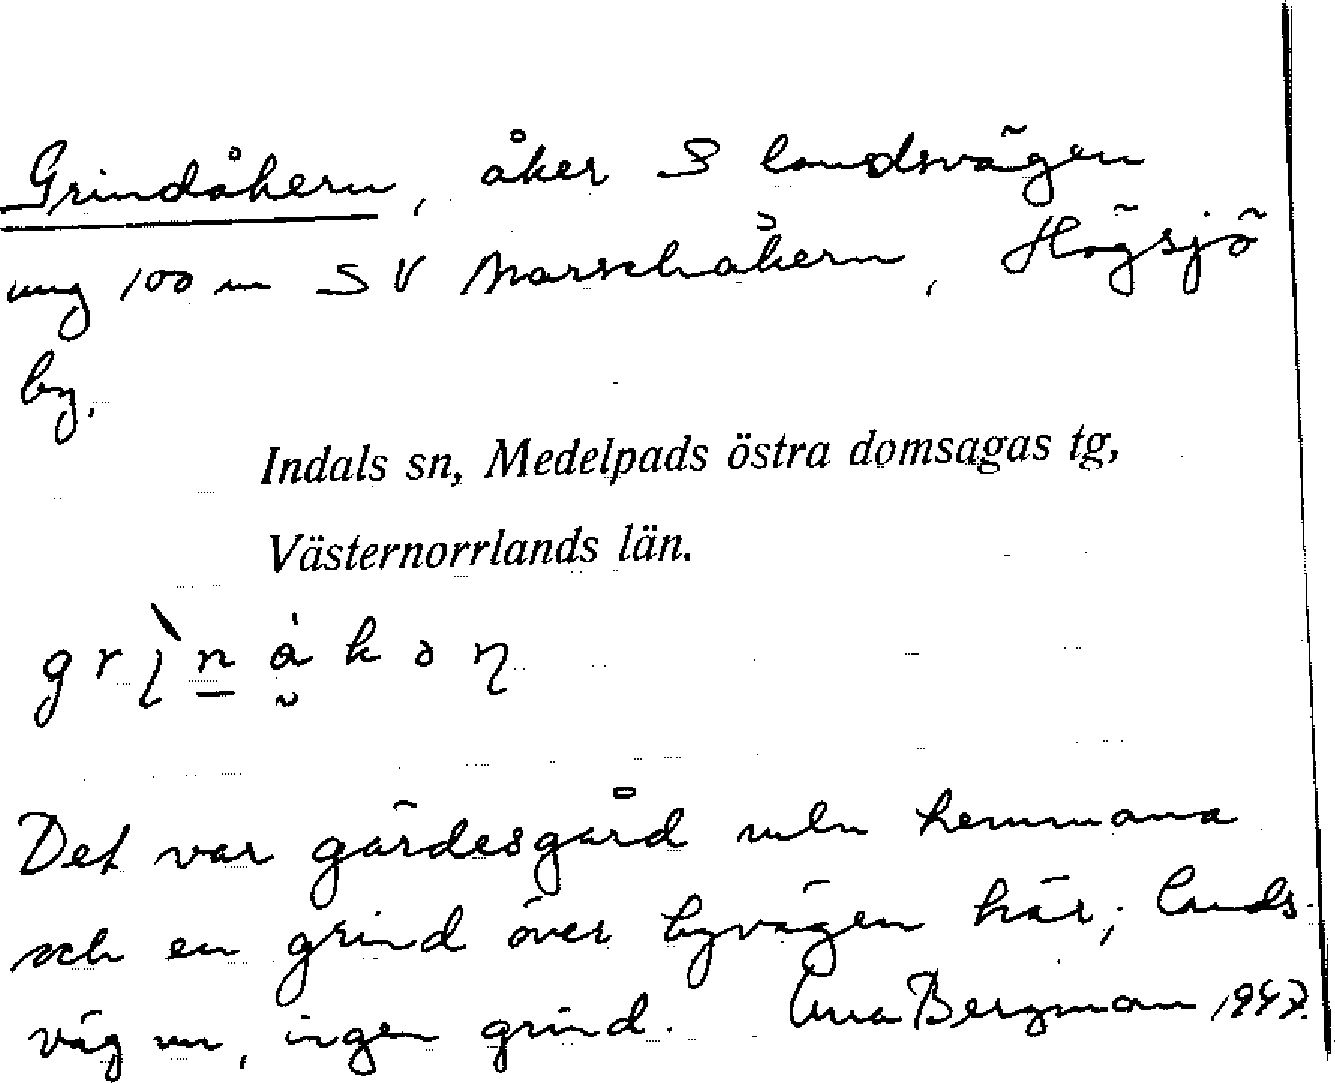 Grindåkern, åker S landsvägen
ung 100 m SV Marschåkern, Högsjö
by.
Indals sn, Medelpads östra domsagas tg,
Västernorrlands län.
Det var gärdesgård mln hemmana
och en grind över byvägen här; lands-
väg nu, ingen grind. Erna Bergman 1947.